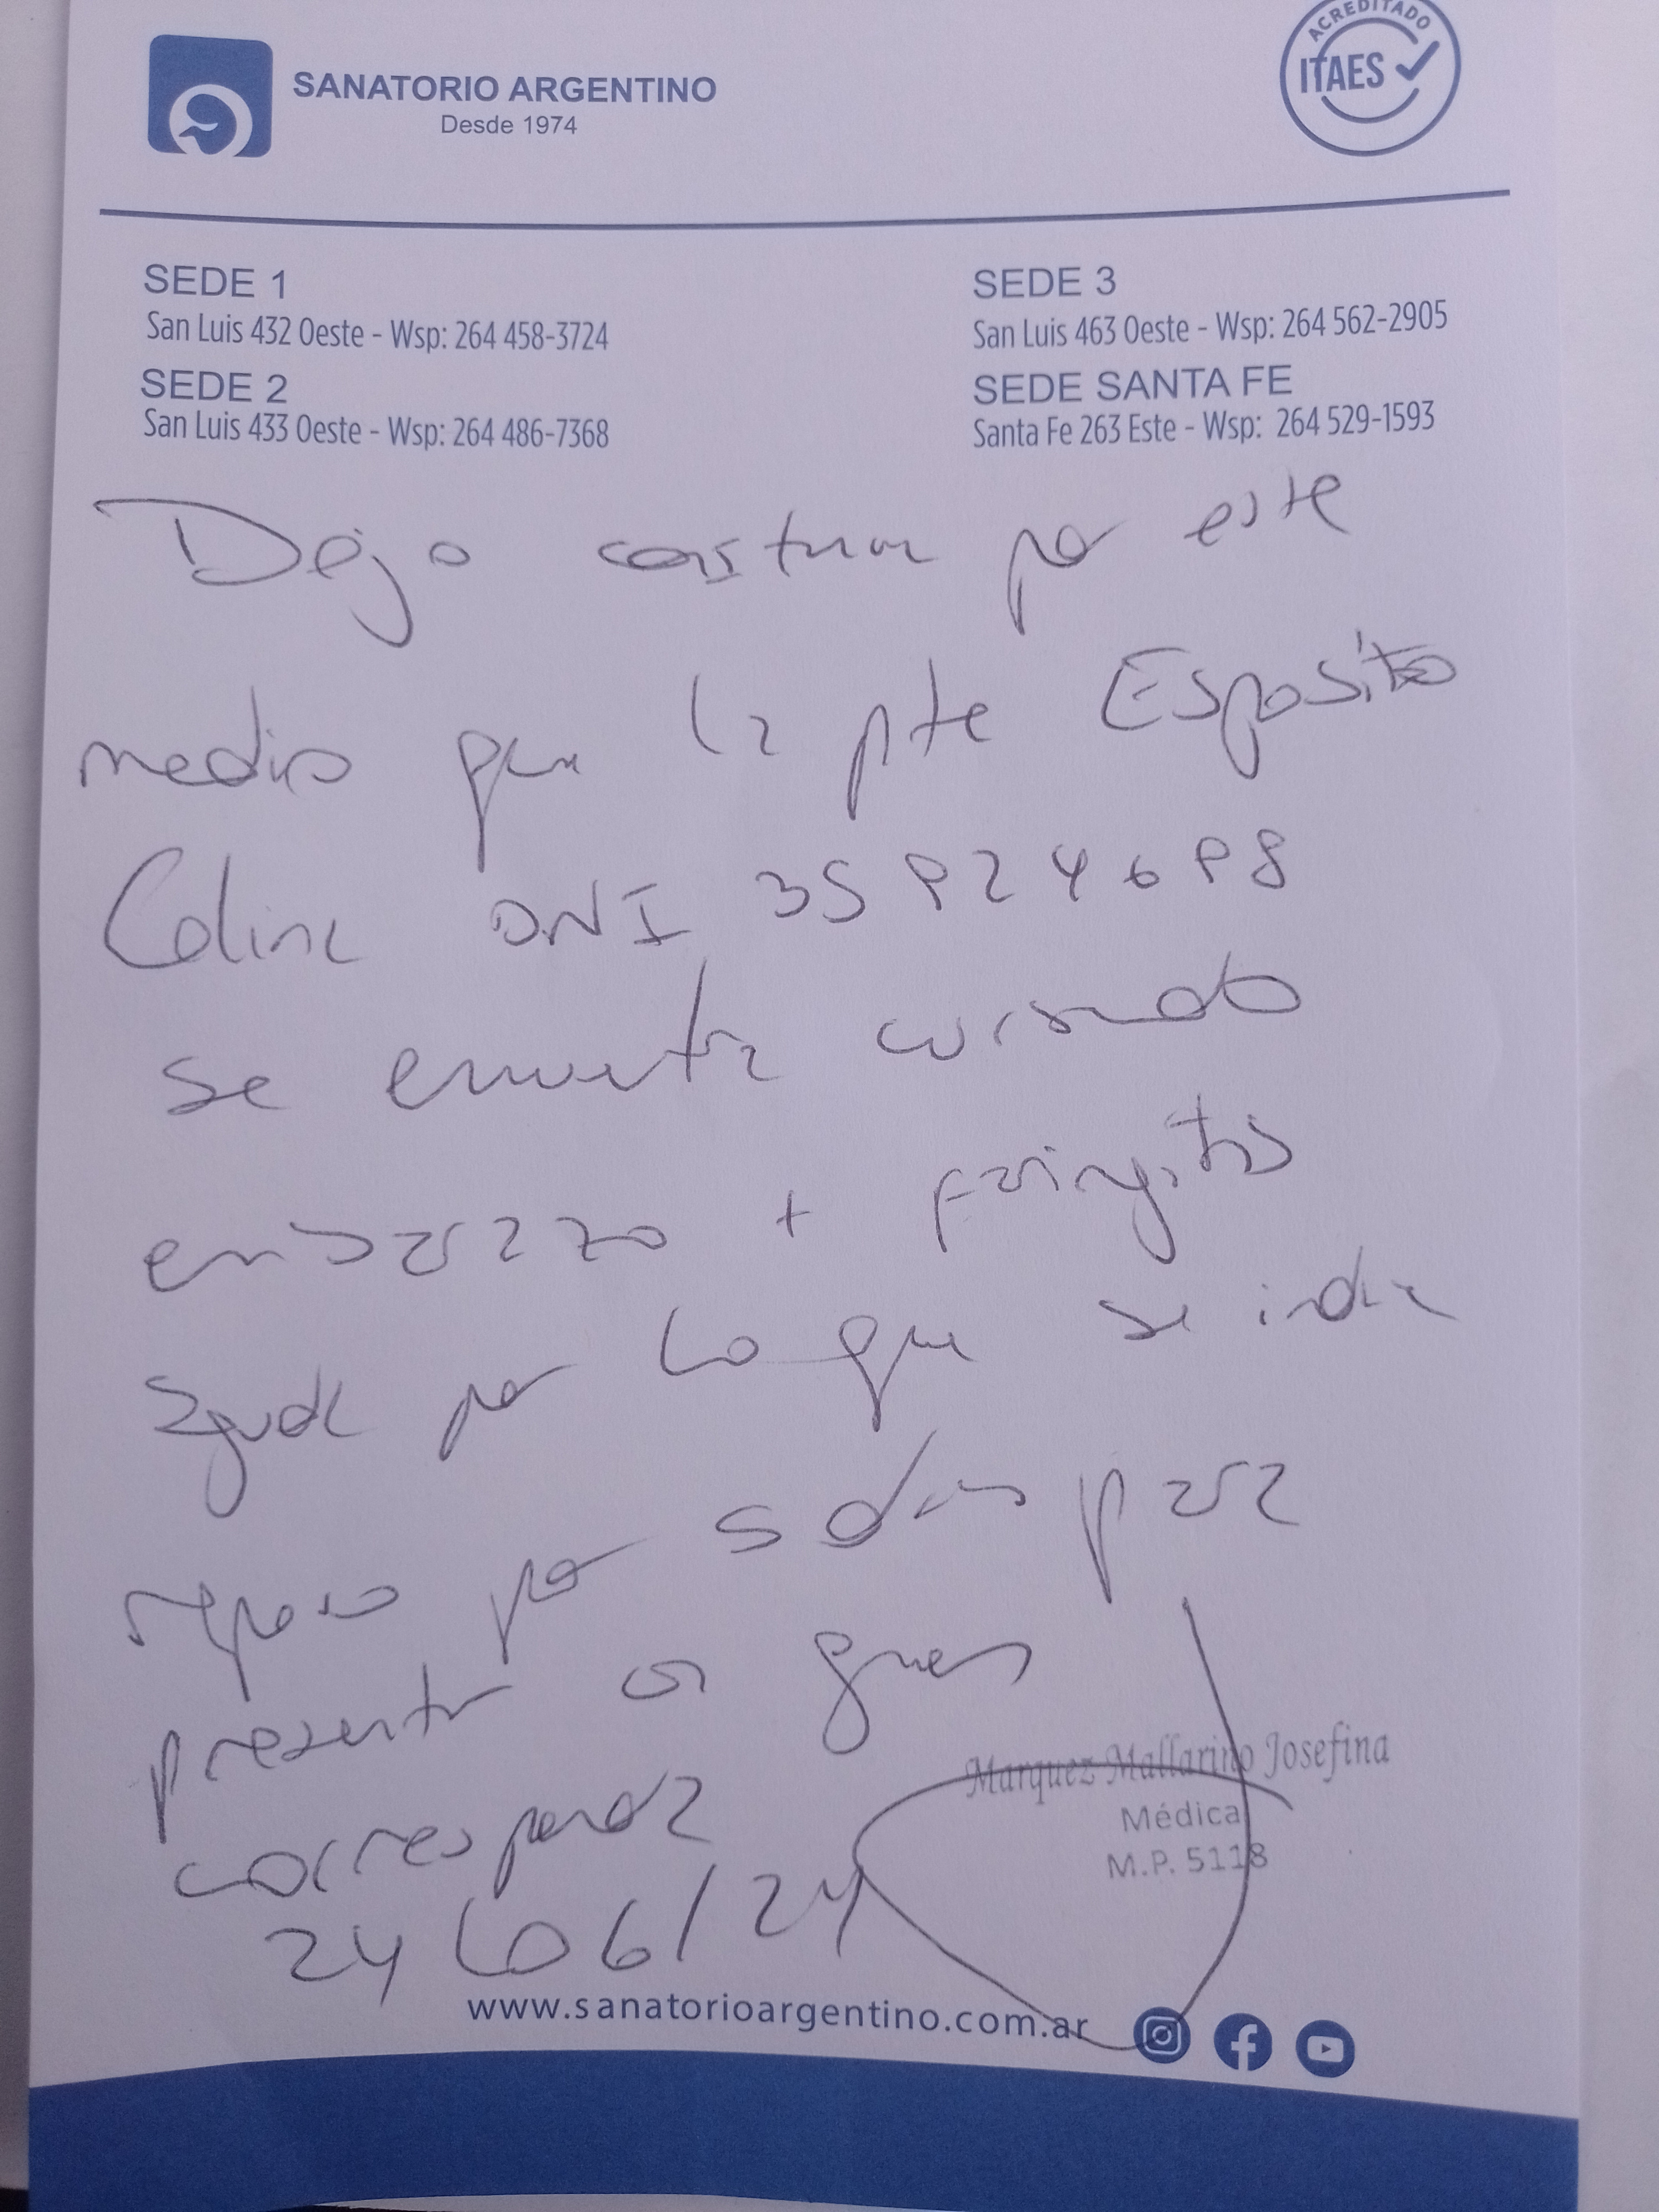 ACREDITADO
ITAES
SANATORIO ARGENTINO
Desde 1974
SEDE 1
San Luis 432 Oeste - Wsp: 264 458-3724
SEDE 2
San Luis 433 Oeste - Wsp: 264 486-7368
SEDE 3
San Luis 463 Oeste - Wsp: 264 562-2905
SEDE SANTA FE
Santa Fe 263 Este - Wsp: 264 529-1593
Dejo constancia por este
medio que la pte Esposito
DNI
se encuentra cursando
embarazo + faringitis
aguda por lo que se indica
reposo por 5 dias para
presentar a quien
corresponda
24/06/24
Marquez Mallarino Josefina
Médica
M.P. 5118
www.sanatorioargentino.com.ar